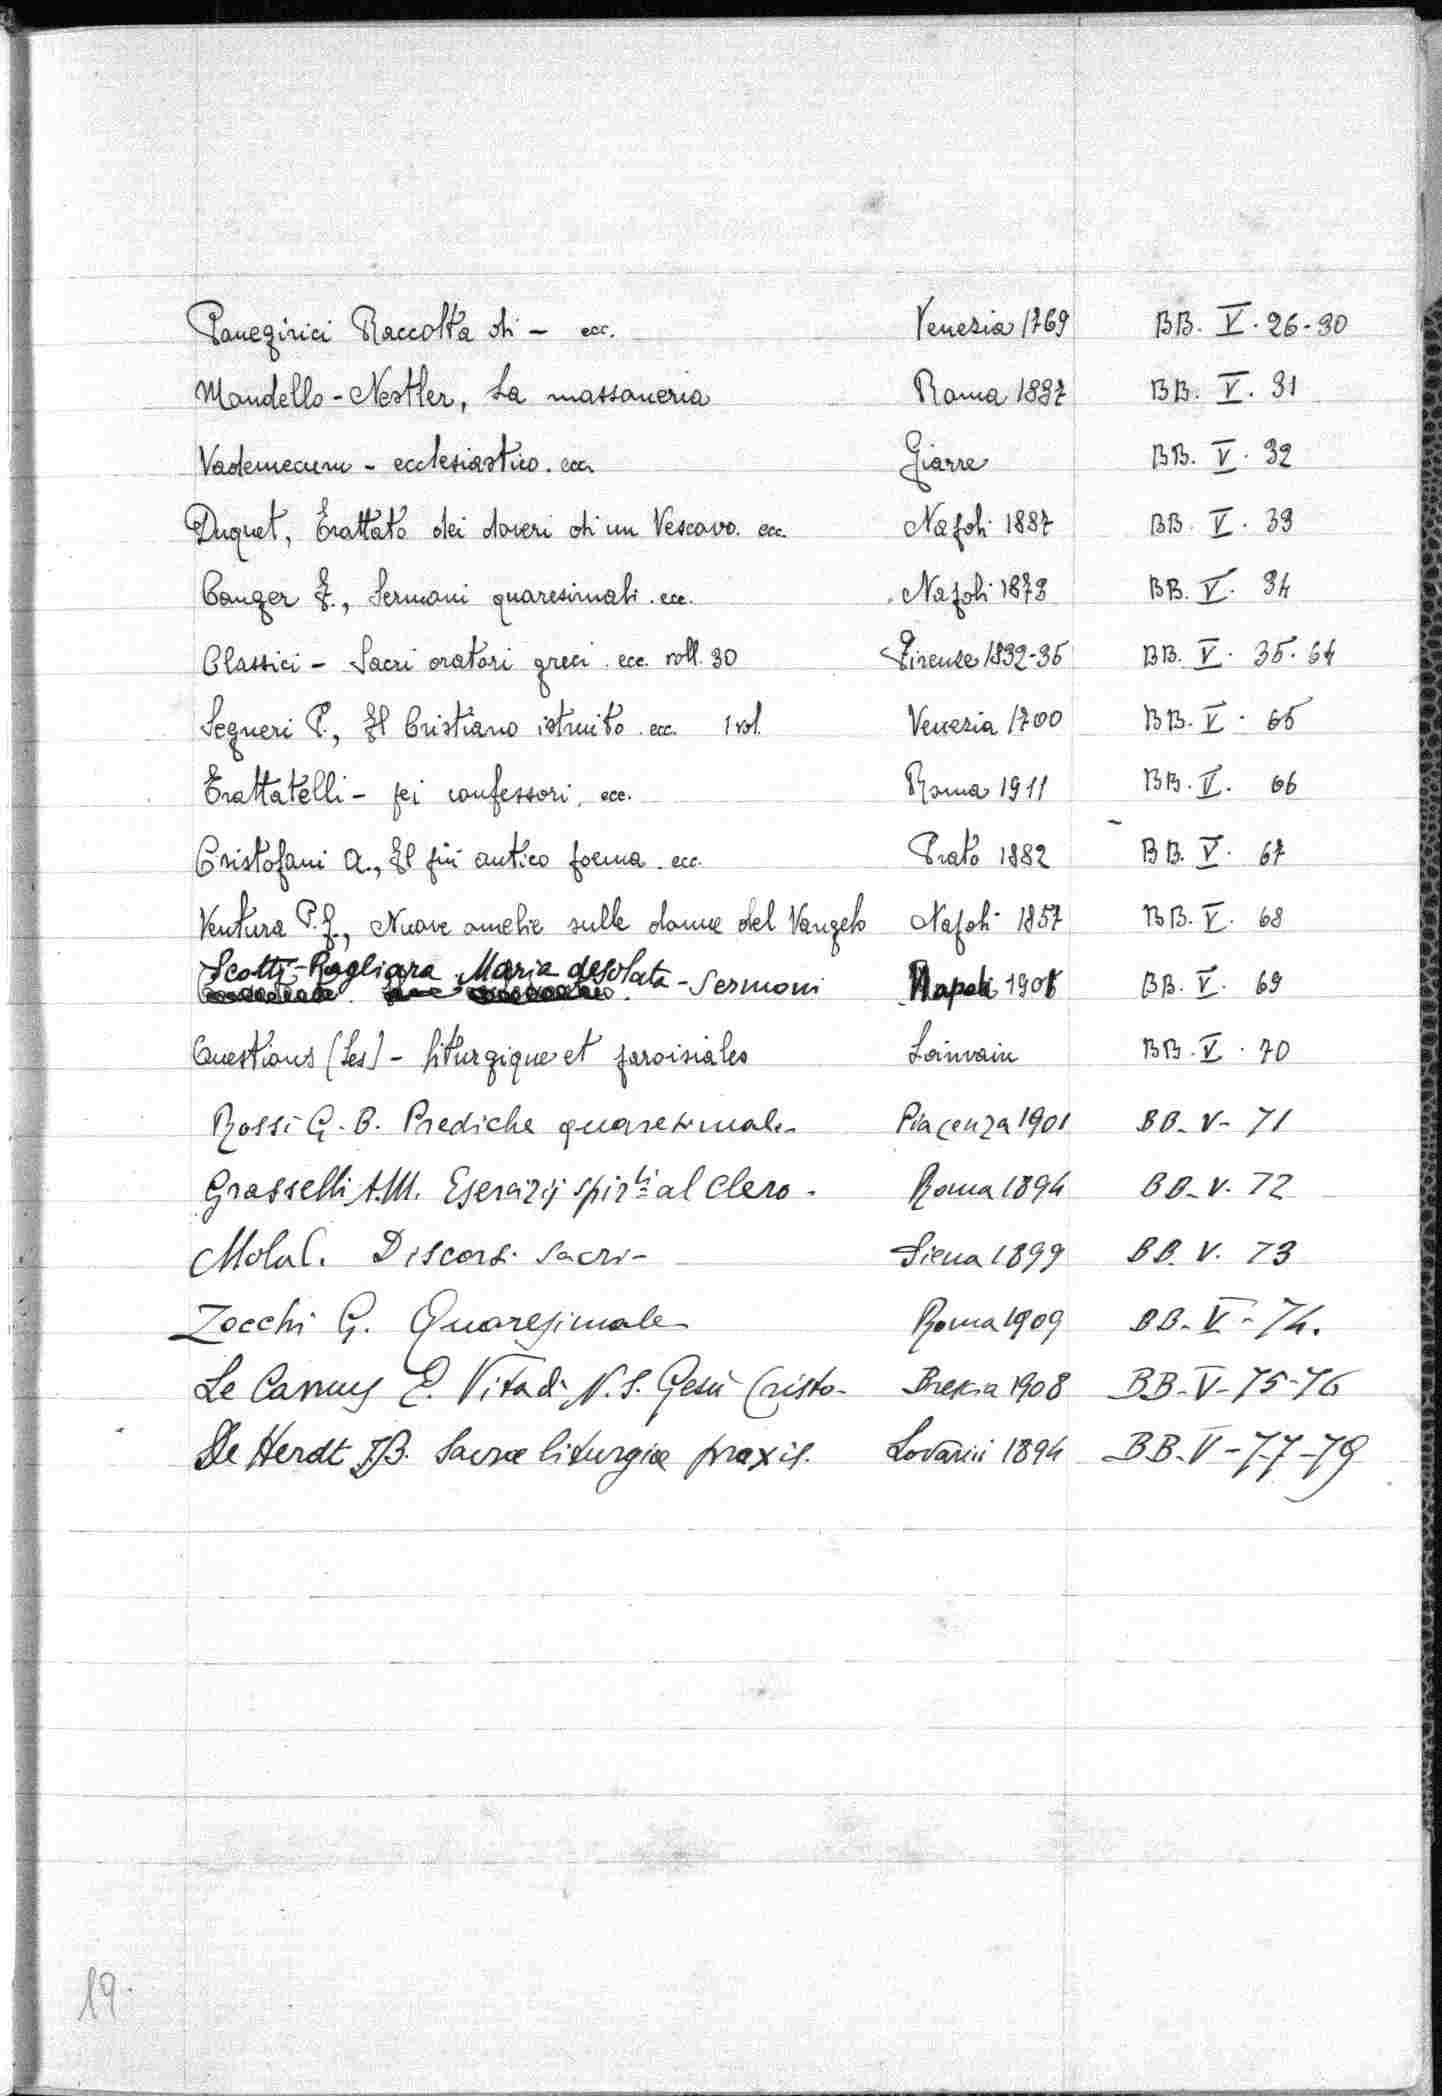 Panegirici Raccolta di - ecc. Venezia 1769 BB. V. 26-30
Mandello-Nestler, La massoneria Roma 1887 BB. V. 31
Vademecum - ecclesiastico. ecc. Giarre BB. V. 32
Duquet, Trattato dei doveri di un Vescovo. ecc. Napoli 1887 BB. V. 33
Conger F., Sermoni quaresimali. ecc. Napoli 1873 BB. V. 34
Classici - Sacri oratori greci. ecc. voll. 30 Firenze 1832-35 BB. V. 35-64
Segneri P., Il Cristiano istruito. ecc. 1 vol. Venezia 1700 BB. V. 65
Trattatelli - pei confessori, ecc. Roma 1911 BB. V. 66
Cristofani A., Il più antico poema. ecc. Prato 1882 BB. V. 67
Ventura P. G., Nuove omelie sulle donne del Vangelo Napoli 1857 BB. V. 68
Scotti-Pagliara Maria desolata - Sermoni Napoli 1901 BB. V. 69
Questions (Les) - liturgique et paroisiales Louvain BB. V. 70
Rossi G. B. Prediche quaresimali Piacenza 1901 BB. V. 71
Grasselli A.M. Esercizij spir.li al clero. Roma 1894 BB. V. 72
Mola C. Discorsi sacri - Siena 1899 BB. V. 73
Zocchi G. Quaresimale Roma 1909 BB. V. 74.
Le Camus E. Vita di N. S. Gesù Cristo - Brescia 1908 BB-V-75-76
De Herdt J.B. Sacrae liturgiae praxis. Lovanii 1894 BB-V-77-79
19.